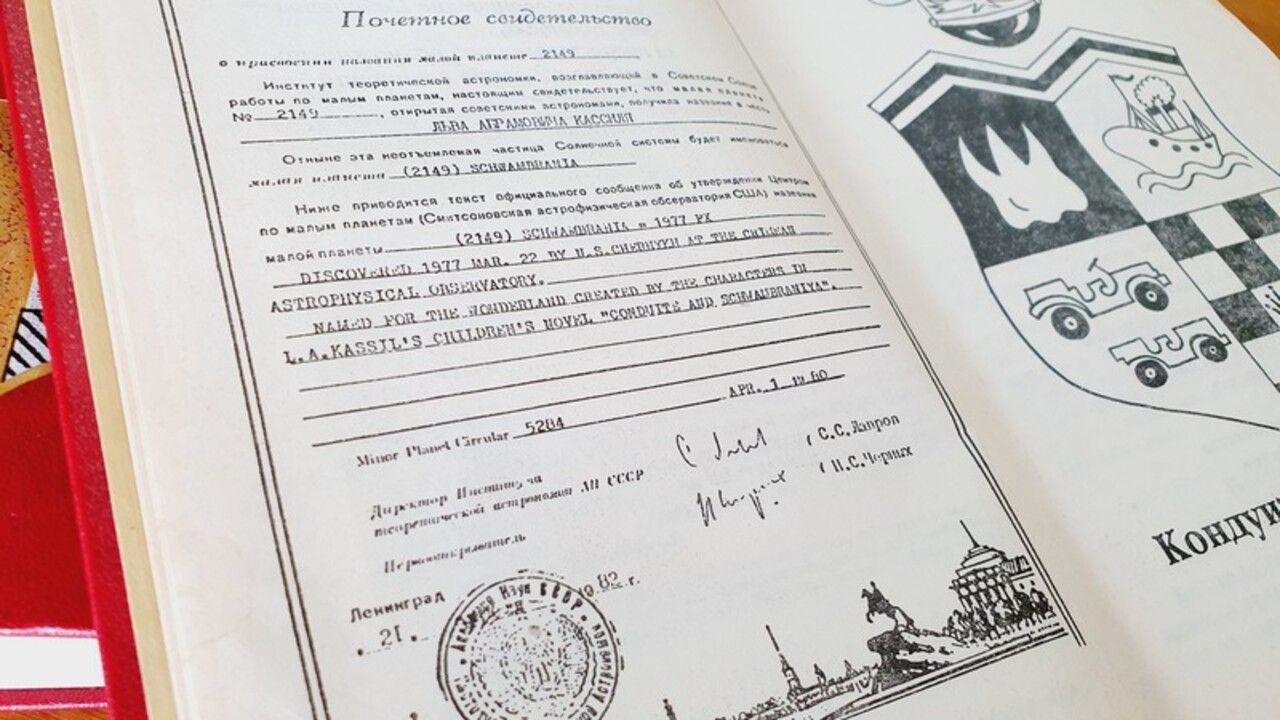 Почетное свидетельство
о присвоении названия малой планете 2149
Институт теоретической астрономии, возглавляющий в Советском Союзе
работы по малым планетам, настоящим свидетельствует, что малая планета
№ 2149, открытая советскими астрономами, получила название в честь
ЛЬВА АБРАМОВИЧА КАССИЛЯ
Отныне эта неотъемлемая частица Солнечной системы будет именоваться
малая планета (2149) SCHWAMBRANIA
Ниже приводится текст официального сообщения об утверждении Центром
по малым планетам (Смитсоновская астрофизическая обсерватория США) названия
малой планеты (2149) SCHWAMBRANIA = 1977 FX
DISCOVERED 1977 MAR. 22 BY N.S.CHERNYKH AT THE CRIMEAN
ASTROPHYSICAL OBSERVATORY.
NAMED FOR THE WONDERLAND CREATED BY THE CHARACTERS IN
L.A.KASSIL'S CHILDREN'S NOVEL "CONDUITE AND SCHWAMBRANIYA".
Minor Planet Circular 5284 APR. 1 1980
Директор Института
теоретической астрономии АН СССР (С.С. Лавров
Первооткрыватель (Н.С. Черных
Ленинград
21. 1982 г.
Академия Наук СССР
Кондуи